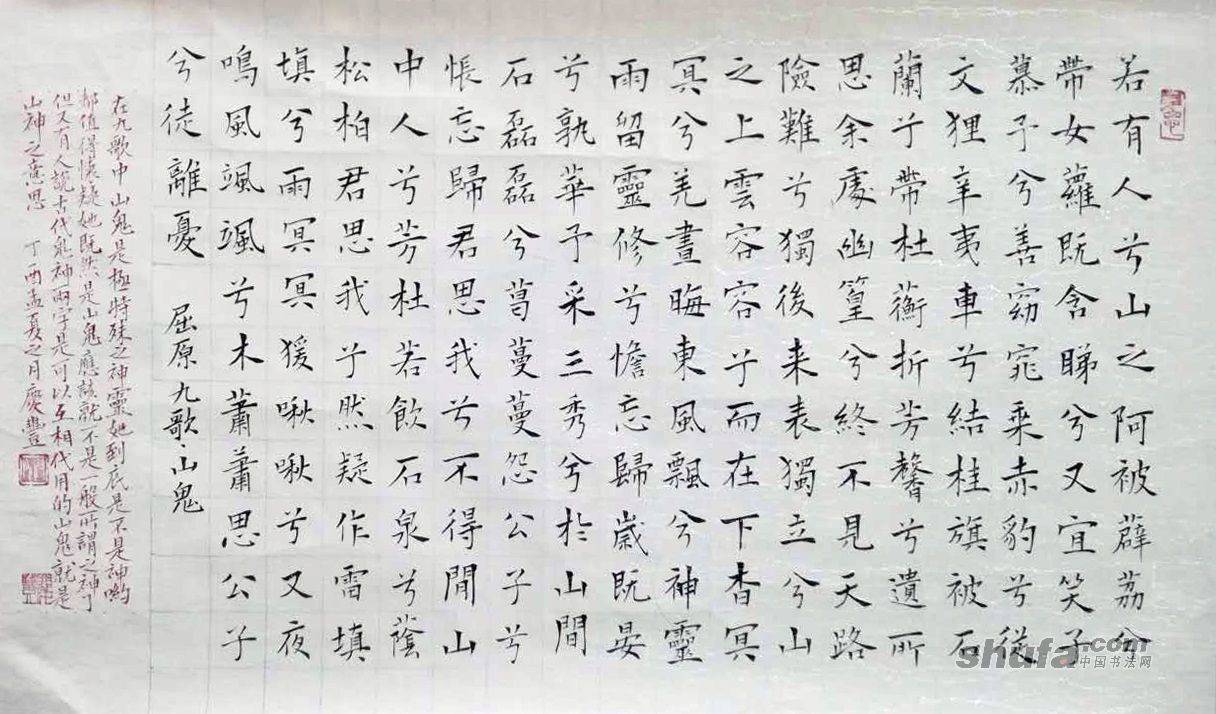 若有人兮山之阿被薜荔兮
帶女蘿既含睇兮又宜笑子
慕予兮善窈窕乘赤豹兮從
文狸辛夷車兮結桂旗被石
蘭兮帶杜蘅折芳馨兮遺所
思余處幽篁兮終不見天路
險難兮獨後来表獨立兮山
之上雲容容兮而在下杳冥
冥兮羌晝晦東風飄兮神靈
雨留靈修兮憺忘歸歲既晏
兮孰華予采三秀兮於山間
石磊磊兮葛蔓蔓怨公子兮
悵忘歸君思我兮不得間山
中人兮芳杜若飲石泉兮蔭
松柏君思我兮然疑作雷填
填兮雨冥冥猨啾啾兮又夜
鳴風颯颯兮木蕭蕭思公子
兮徒離憂 屈原九歌·山鬼
在九歌中山鬼是極特殊之神靈她到底是不是神喲
都值得懷疑她既然是山鬼應該就不是一般所謂之神了
但又有人說古代鬼神兩字是可以互相代用的山鬼就是
山神之意思 丁酉孟夏之月慶豐
shufa.com
中国书法网